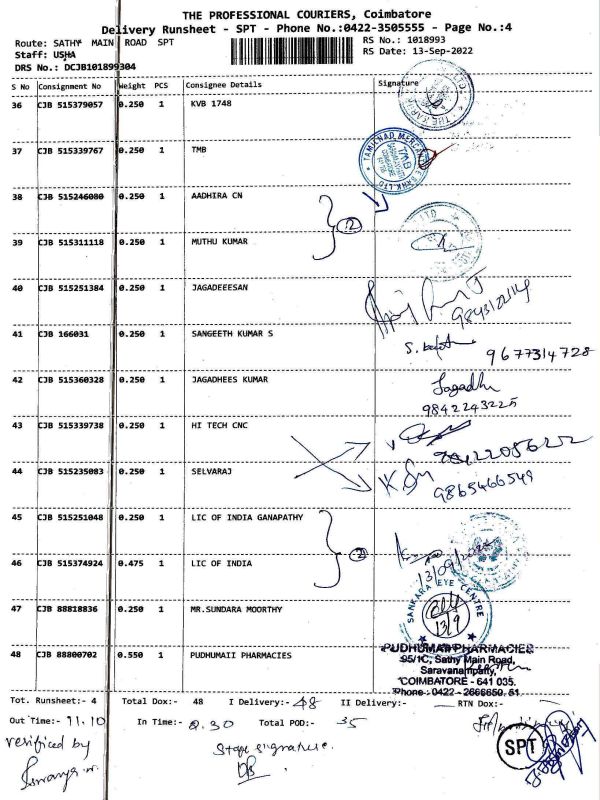 THE PROFESSIONAL COURIERS, Coimbatore
Delivery Runsheet - SPT - Phone No.:0422-3505555 - Page No.:4
Route: SATHY MAIN ROAD SPT
RS No.: 1018993
Staff: USHA
RS Date: 13-Sep-2022
DRS No.: DCJB101899304
S No Consignment No Weight PCS Consignee Details Signature
36 CJB 515379057 0.250 1 KVB 1748
37 CJB 515339767 0.250 1 TMB
TAMILNAD MERCANTILE BANK LTD
TMB
38 CJB 515246080 0.250 1 AADHIRA CN
2
39 CJB 515311118 0.250 1 MUTHU KUMAR
40 CJB 515251384 0.250 1 JAGADEEESAN
9843122114
41 CJB 166031 0.250 1 SANGEETH KUMAR S
9677314728
42 CJB 515360328 0.250 1 JAGADHEES KUMAR
Jagadhu
9842243225
43 CJB 515339738 0.250 1 HI TECH CNC
44 CJB 515235083 0.250 1 SELVARAJ
9865466549
45 CJB 515251048 0.250 1 LIC OF INDIA GANAPATHY
2
46 CJB 515374924 0.475 1 LIC OF INDIA
13/09/2022
47 CJB 88818836 0.250 1 MR.SUNDARA MOORTHY
SANKARA EYE CENTRE
13/9
48 CJB 88800702 0.550 1 PUDHUMAII PHARMACIES
PUDHUMAII PHARMACIES
95/1C, Sathy Main Road,
Saravanampatty,
COIMBATORE - 641 035.
Phone : 0422 - 2666650, 51
Tot. Runsheet:- 4 Total Dox:- 48 I Delivery:- 48 II Delivery:- RTN Dox:-
Out Time:- 11.10 In Time:- 2.30 Total POD:- 35
verified by
Staff signature.
SPT